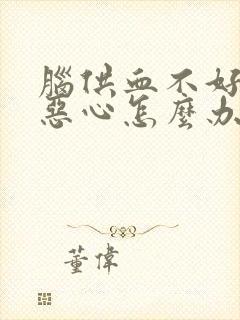 腦供血不好
惡心怎麼办
董偉